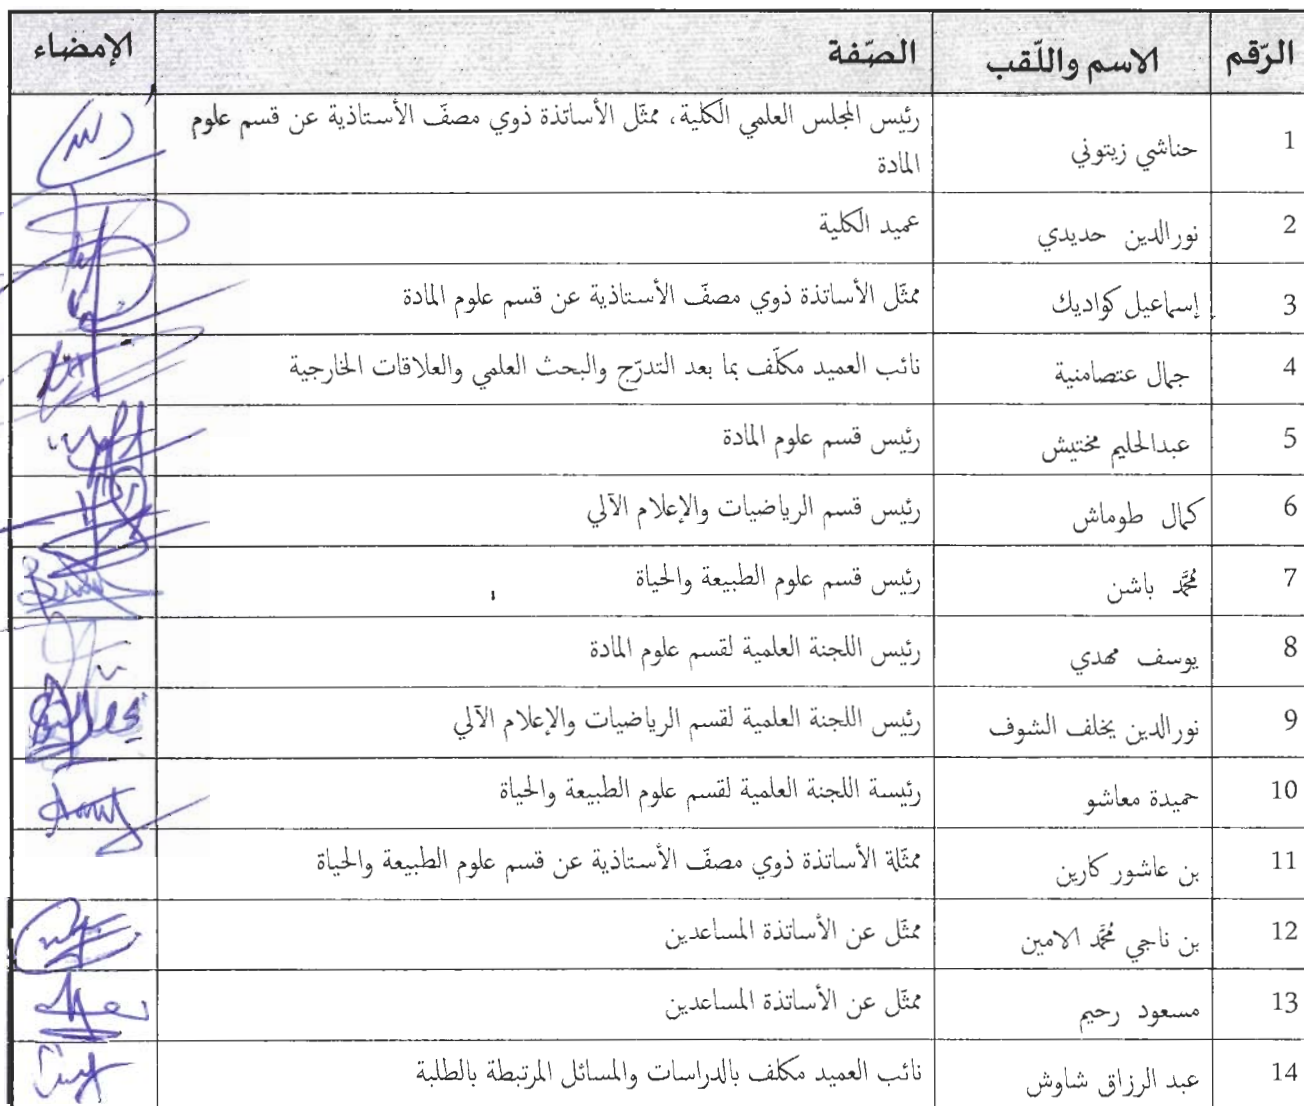 الرّقم الاسم واللّقب الصّفة الإمضاء
1 حناشي زيتوني رئيس المجلس العلمي الكلية، ممثّل الأساتذة ذوي مصفّ الأستاذية عن قسم علوم
المادة
2 نورالدين حديدي عميد الكلية
3 إسماعيل كواديك ممثّل الأساتذة ذوي مصفّ الأستاذية عن قسم علوم المادة
4 جمال عتصامنية نائب العميد مكلّف بما بعد التدرّج والبحث العلمي والعلاقات الخارجية
5 عبدالحليم مختيش رئيس قسم علوم المادة
6 كمال طوماش رئيس قسم الرياضيات والإعلام الآلي
7 مُحمَّد باشن رئيس قسم علوم الطبيعة والحياة
8 يوسف مهدي رئيس اللجنة العلمية لقسم علوم المادة
9 نورالدين يخلف الشوف رئيس اللجنة العلمية لقسم الرياضيات والإعلام الآلي
10 حميدة معاشو رئيسة اللجنة العلمية لقسم علوم الطبيعة والحياة
11 بن عاشور كارين ممثّلة الأساتذة ذوي مصفّ الأستاذية عن قسم علوم الطبيعة والحياة
12 بن ناجي مُحمَّد الامين ممثّل عن الأساتذة المساعدين
13 مسعود رحيم ممثّل عن الأساتذة المساعدين
14 عبد الرزاق شاوش نائب العميد مكلف بالدراسات والمسائل المرتبطة بالطلبة